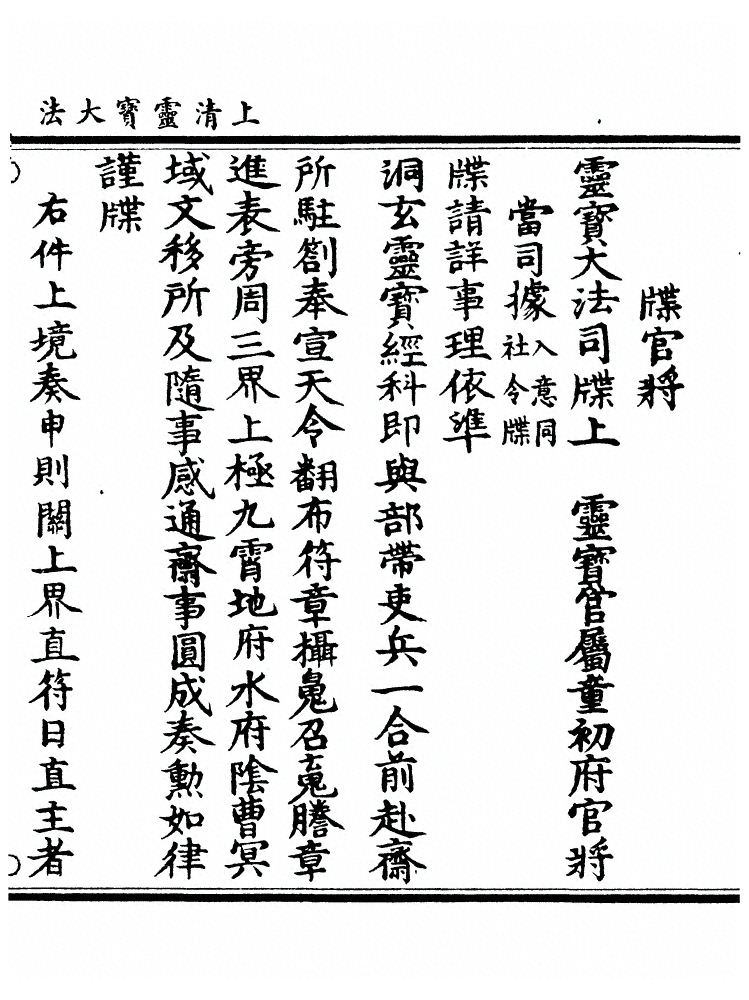 上清靈寶大法
牒官將
靈寶大法司牒上　靈寶官屬童初府官將
當司據入意同社令牒
牒請詳事理依準
洞玄靈寶經科即與部帶吏兵一合前赴齋
所駐劄奉宣天令翻布符章攝䰟召魂謄章
進表旁周三界上極九霄地府水府陰曹冥
域文移所及隨事感通齋事圓成奏勳如律
謹牒
右件上境奏申則關上界直符日直主者